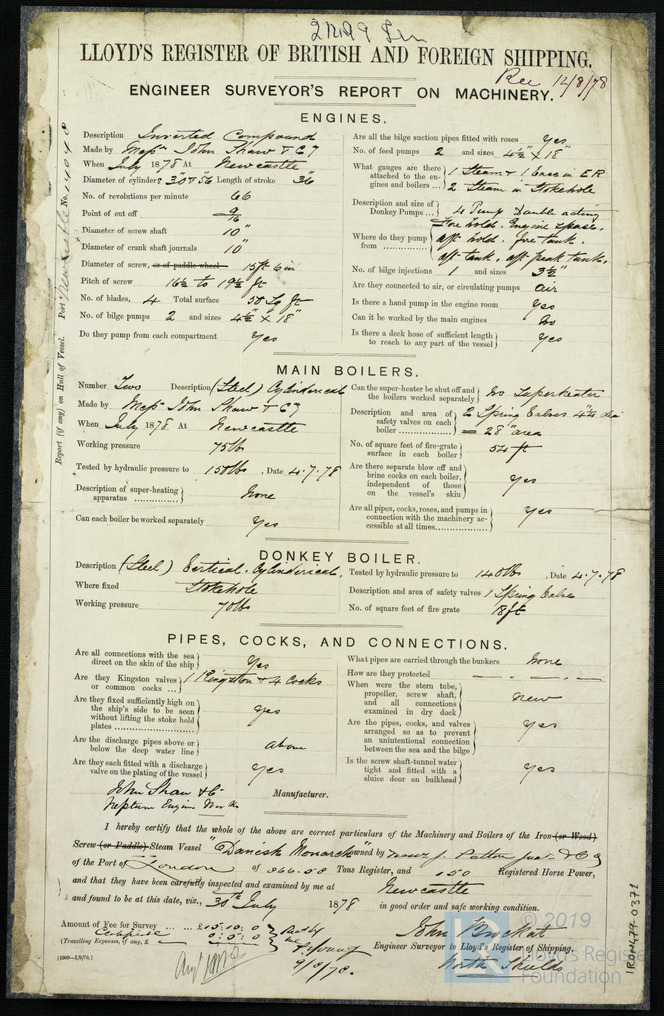 LLOYD'S REGISTER OF BRITISH AND FOREIGN SHIPPING.
Rec 12/8/78
ENGINEER SURVEYOR'S REPORT ON MACHINERY.
Port No. 14048
Report (if any) on Hull of Vessel.
ENGINES.
Description Inverted Compound
Made by Messrs John Shaw & Co
When July 1878 At Newcastle
Diameter of cylinders 30" & 56 Length of stroke 36
No. of revolutions per minute 66
Point of cut off 9/16
Diameter of screw shaft 10"
Diameter of crank shaft journals 10"
Diameter of screw, or of paddle wheel 15ft 6in
Pitch of screw 16½ to 19½ ft
No. of blades, 4 Total surface 58 Sq ft
No. of bilge pumps 2 and sizes 4½" x 18"
Do they pump from each compartment Yes
Are all the bilge suction pipes fitted with roses Yes
No. of feed pumps 2 and sizes 4½" x 18"
What gauges are there attached to the engines and boilers ... 1 Steam & 1 Vacm in E R
2 Steam in Stokehole
Description and size of Donkey Pumps ... 4 Pump Double acting
Where do they pump from Fore hold. Engine Space.
aft hold. fore tank.
aft tank. aft peak tank.
No. of bilge injections 1 and sizes 3½"
Are they connected to air, or circulating pumps air
Is there a hand pump in the engine room Yes
Can it be worked by the main engines No
Is there a deck hose of sufficient length to reach to any part of the vessel Yes
MAIN BOILERS.
Number Two Description (Steel) Cylinderical
Made by Messrs John Shaw & Co
When July 1878 At Newcastle
Working pressure 75lb
Tested by hydraulic pressure to 150lbs. Date 4.7.78
Description of super-heating apparatus .............. None
Can each boiler be worked separately Yes
Can the super-heater be shut off and the boilers worked separately No Superheater
Description and area of safety valves on each boiler .............. 2 Spring Valves 4¼ dia
= 28" area
No. of square feet of fire-grate surface in each boiler 54 ft
Are there separate blow off and brine cocks on each boiler, independent of those on the vessel's skin Yes
Are all pipes, cocks, roses, and pumps in connection with the machinery accessible at all times......... Yes
DONKEY BOILER.
Description (Steel) Vertical. Cylinderical.
Where fixed Stokehole
Working pressure 70lbs
Tested by hydraulic pressure to 140lbs. Date 4.7.78
Description and area of safety valves 1 Spring Valve
No. of square feet of fire grate 18ft
PIPES, COCKS, AND CONNECTIONS.
Are all connections with the sea direct on the skin of the ship Yes
Are they Kingston valves or common cocks ... 1 Kingston & 4 Cocks
Are they fixed sufficiently high on the ship's side to be seen without lifting the stoke hold plates .............. Yes
Are the discharge pipes above or below the deep water line above
Are they each fitted with a discharge valve on the plating of the vessel Yes
What pipes are carried through the bunkers None
How are they protected
When were the stern tube, propeller, screw shaft, and all connections examined in dry dock New
Are the pipes, cocks, and valves arranged so as to prevent an unintentional connection between the sea and the bilge Yes
Is the screw shaft-tunnel water tight and fitted with a sluice door on bulkhead Yes
John Shaw & Co Manufacturer.
Neptune Engine Works
I hereby certify that the whole of the above are correct particulars of the Machinery and Boilers of the Iron (or Wood)
Screw (or Paddle) Steam Vessel "Danish Monarch" owned by Messrs J. Patton Junr & Co
of the Port of London of 866.58 Tons Register, and 150 Registered Horse Power,
and that they have been carefully inspected and examined by me at Newcastle
and found to be at this date, viz., 30th July 1878 in good order and safe working condition.
Amount of Fee for Survey ... £15:10:0
Certificate 0:5:0
(Travelling Expenses, if any, £
9/8/78.
John Brockat
Engineer Surveyor to Lloyd's Register of Shipping.
North Shields
(1000—1/9/76.)
IRON479-0371
© 2019
Lloyd's Register
Foundation